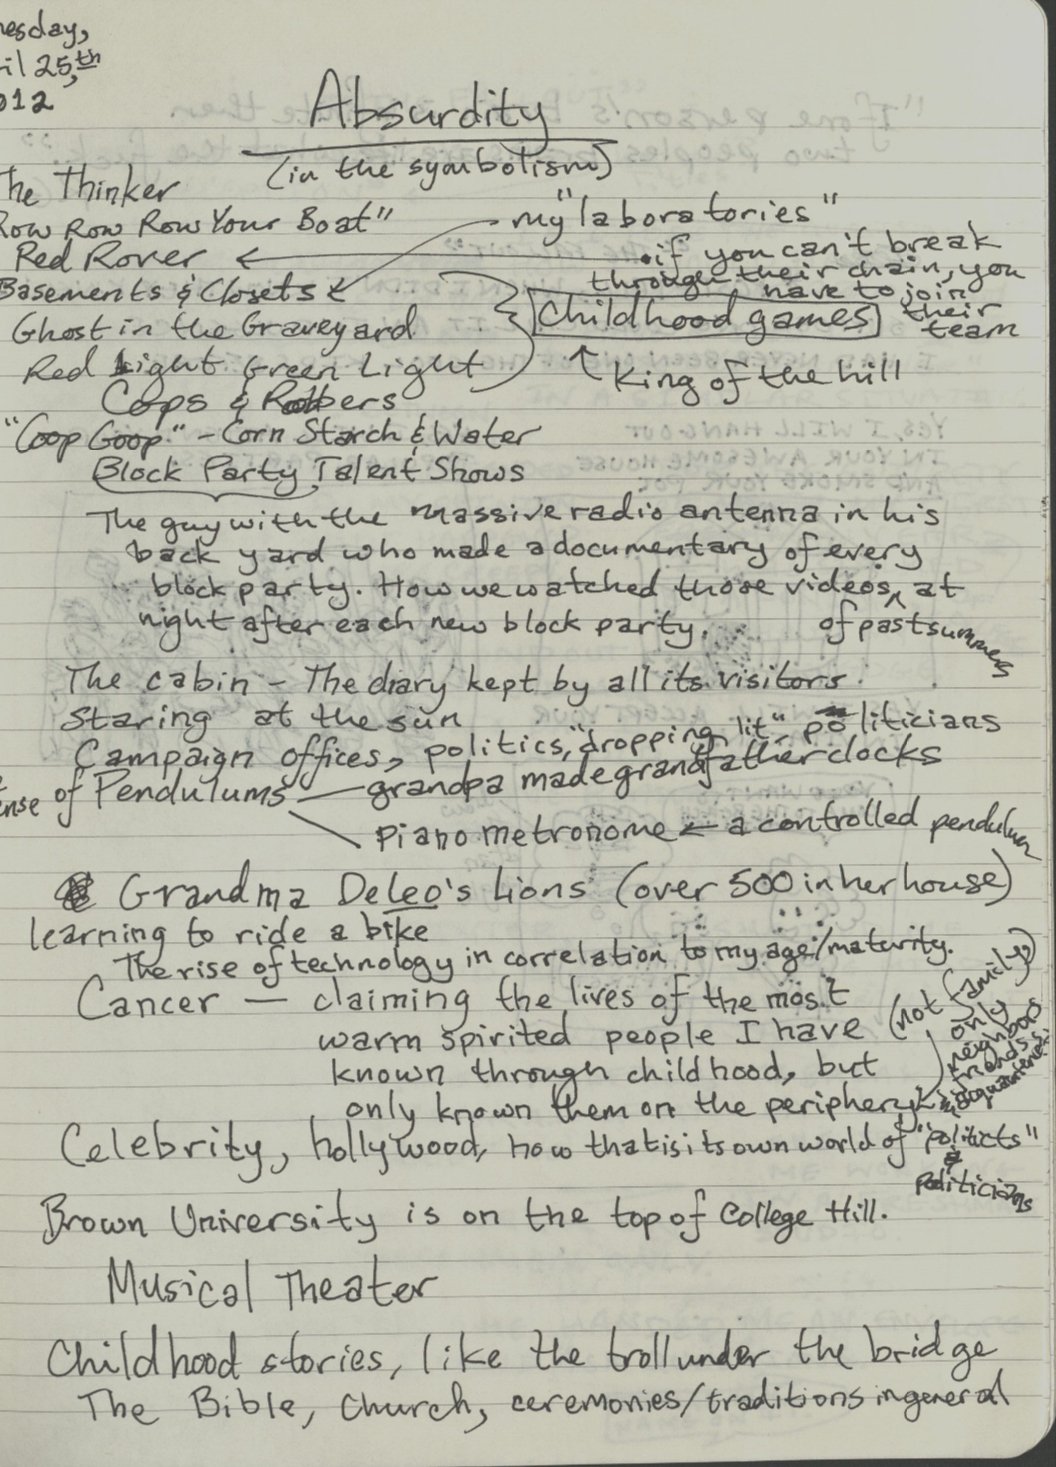 nesday,
il 25,th
012
Absurdity
(in the symbolism)
The Thinker
Row Row Row Your Boat"
my "laboratories"
Red Rover
• if you can't break
through their chain, you
have to join
their
team
Basements & Closets
Ghost in the Graveyard
Childhood games
Red Light Green Light
King of the hill
Cops & Robbers
"Goop Goop" - Corn Starch & Water
Block Party Talent Shows
The guy with the massive radio antenna in his
back yard who made a documentary of every
block party. How we watched those videos, ^ at
of past summers
night after each new block party.
The cabin - The diary kept by all its visitors
Staring at the sun
Campaign offices, politics, "dropping lit", politicians
ense of Pendulums
grandpa made grandfather clocks
piano metronome ← a controlled pendulum
Grandma DeLeo's Lions (over 500 in her house)
learning to ride a bike
The rise of technology in correlation to my age/maturity.
Cancer — claiming the lives of the most
warm spirited people I have
known through childhood, but
only known them on the periphery.
(not family)
only
neighbors
friends
Celebrity, hollywood, how that is its own world of "politicts"
&
politicians
Brown University is on the top of College Hill.
Musical Theater
Childhood stories, like the troll under the bridge
The Bible, Church, ceremonies/traditions in general